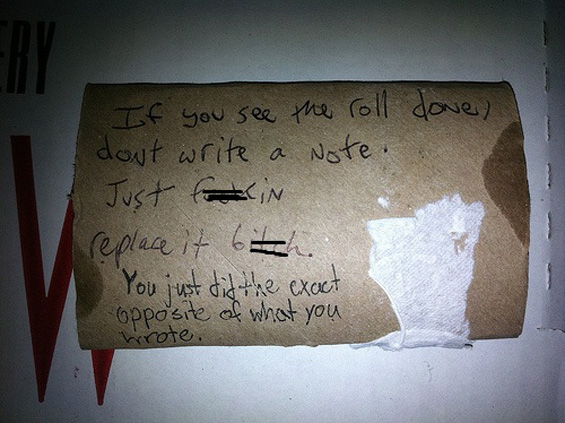 ERY
If you see the roll done,
dont write a note.
Just f kin
replace it b ch.
You just did the exact
opposite of what you
wrote.